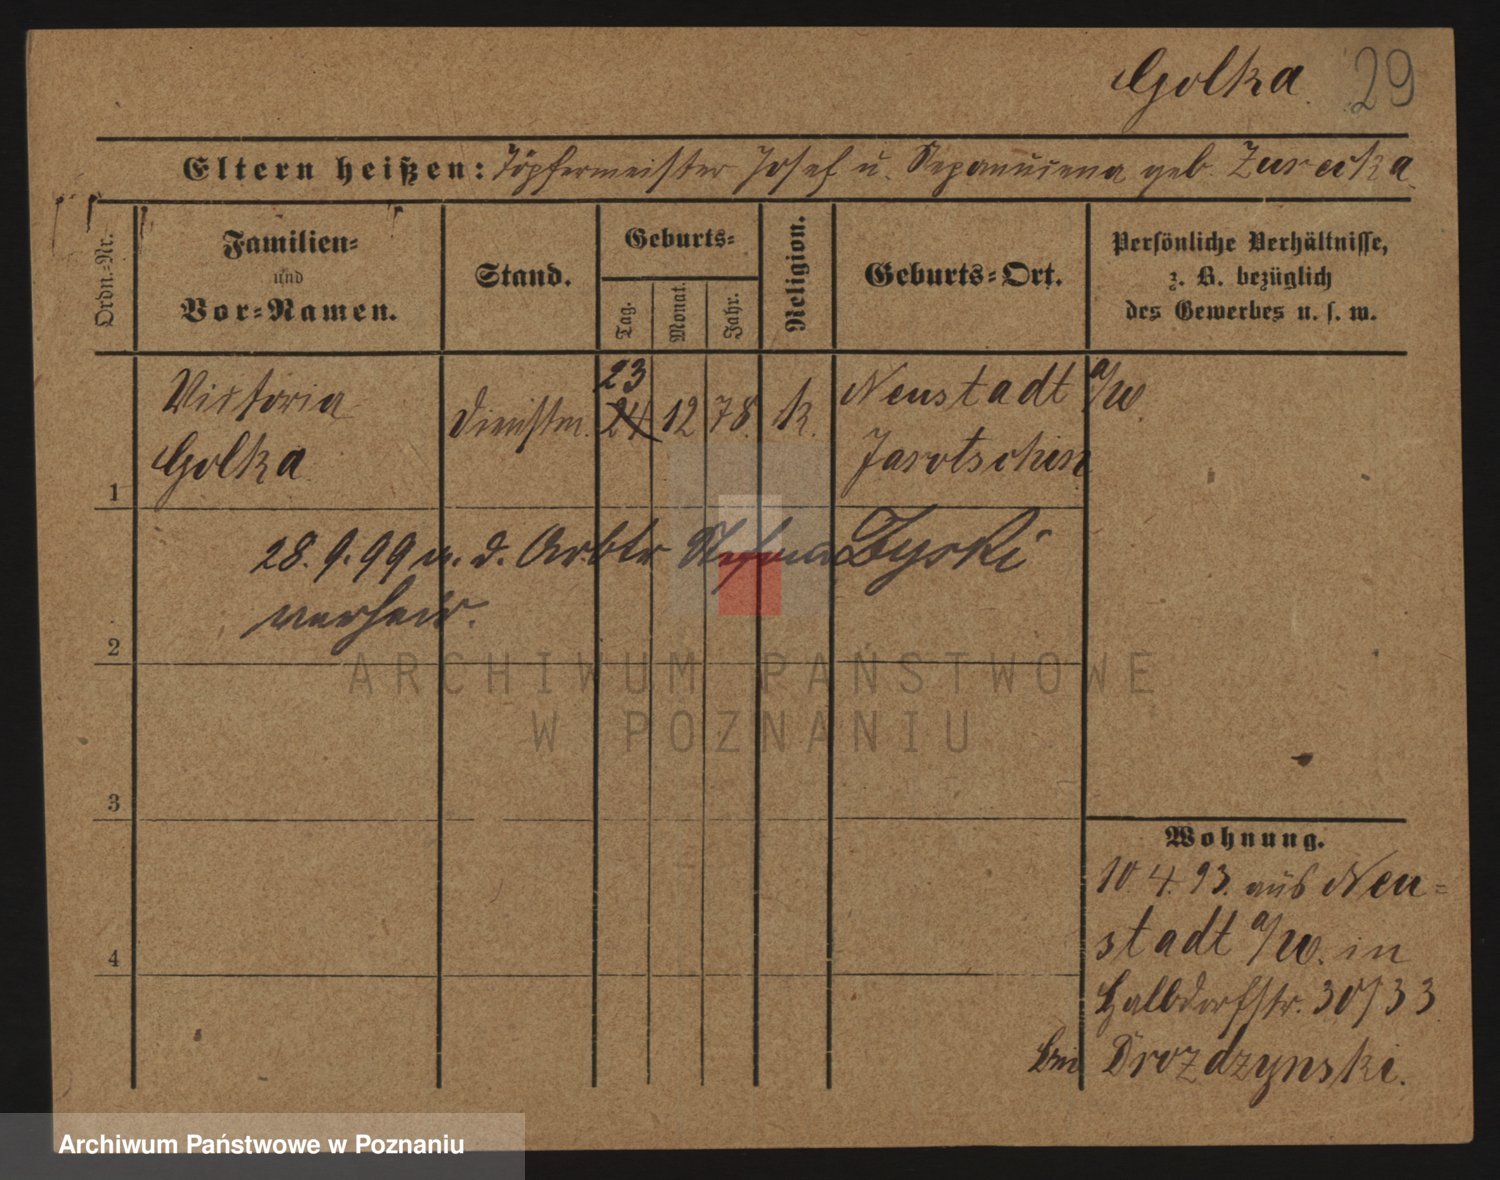 Golka 29
Eltern heißen: Töpfermeister Josef u. geb. Zurecka
Ordn.-Nr.
Familien-
und
Vor-Namen.
Stand.
Geburts-
Tag.
Monat.
Jahr.
Religion.
Geburts-Ort.
Persönliche Verhältnisse,
z. B. bezüglich
des Gewerbes u. s. w.
23
Victoria Dienstm. 24 12 78. k. Neustadt a/W.
Golka Jarotschin
1
28.9.99 m. d. Arbtr Stefan Zyski
verheir.
2
ARCHIWUM PAŃSTWOWE
W POZNANIU
3
Wohnung.
10 4. 93. aus Neu-
stadt a/W. in
4
Halbdorfstr. 30/33
bei Drozdzynski.
Archiwum Państwowe w Poznaniu